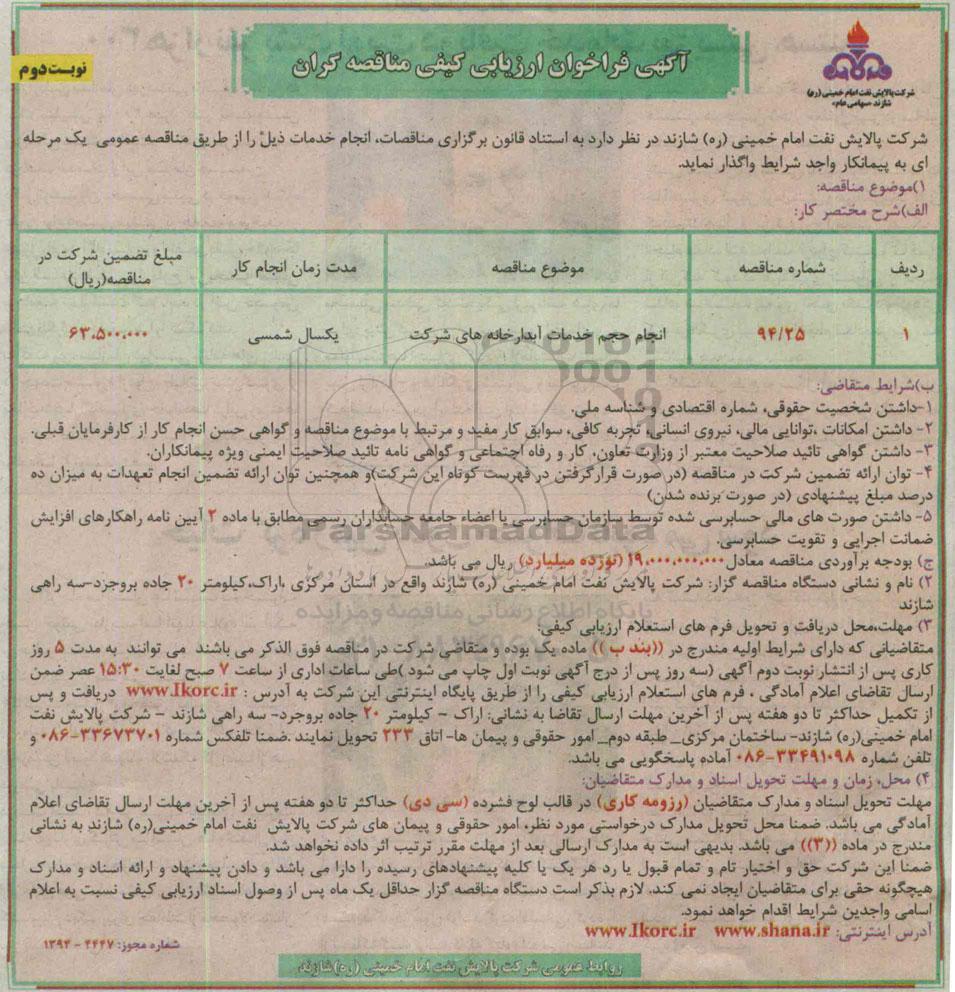 آگهی فراخوان ارزیابی کیفی مناقصه گران
نوبت دوم
شرکت پالایش نفت امام خمینی (ره)
شازند «سهامی عام»
شرکت پالایش نفت امام خمینی (ره) شازند در نظر دارد به استناد قانون برگزاری مناقصات، انجام خدمات ذیل را از طریق مناقصه عمومی یک مرحله
ای به پیمانکار واجد شرایط واگذار نماید.
۱)موضوع مناقصه:
الف)شرح مختصر کار:
ردیف شماره مناقصه موضوع مناقصه مدت زمان انجام کار مبلغ تضمین شرکت در
مناقصه(ریال)
۱ ۹۴/۲۵ انجام حجم خدمات آبدارخانه های شرکت یکسال شمسی ۶۳،۵۰۰،۰۰۰
ب)شرایط متقاضی:
۱-داشتن شخصیت حقوقی، شماره اقتصادی و شناسه ملی.
۲- داشتن امکانات ،توانایی مالی، نیروی انسانی، تجربه کافی، سوابق کار مفید و مرتبط با موضوع مناقصه و گواهی حسن انجام کار از کارفرمایان قبلی.
۳- داشتن گواهی تائید صلاحیت معتبر از وزارت تعاون، کار و رفاه اجتماعی و گواهی نامه تائید صلاحیت ایمنی ویژه پیمانکاران.
۴- توان ارائه تضمین شرکت در مناقصه (در صورت قرارگرفتن در فهرست کوتاه این شرکت)و همچنین توان ارائه تضمین انجام تعهدات به میزان ده
درصد مبلغ پیشنهادی (در صورت برنده شدن)
۵- داشتن صورت های مالی حسابرسی شده توسط سازمان حسابرسی یا اعضاء جامعه حسابداران رسمی مطابق با ماده ۲ آیین نامه راهکارهای افزایش
ضمانت اجرایی و تقویت حسابرسی.
ParsNamadData
ج) بودجه برآوردی مناقصه معادل۱۹،۰۰۰،۰۰۰،۰۰۰ (نوزده میلیارد) ریال می باشد.
۲) نام و نشانی دستگاه مناقصه گزار: شرکت پالایش نفت امام خمینی (ره) شازند واقع در استان مرکزی ،اراک،کیلومتر ۲۰ جاده بروجرد-سه راهی
شازند
پایگاه اطلاع رسانی مناقصه و مزایده
۳) مهلت،محل دریافت و تحویل فرم های استعلام ارزیابی کیفی.
متقاضیانی که دارای شرایط اولیه مندرج در ((بند ب )) ماده یک بوده و متقاضی شرکت در مناقصه فوق الذکر می باشند می توانند به مدت ۵ روز
کاری پس از انتشار نوبت دوم آگهی (سه روز پس از درج آگهی نوبت اول چاپ می شود )طی ساعات اداری از ساعت ۷ صبح لغایت ۱۵:۳۰ عصر ضمن
ارسال تقاضای اعلام آمادگی ، فرم های استعلام ارزیابی کیفی را از طریق پایگاه اینترنتی این شرکت به آدرس : www.Ikorc.ir دریافت و پس
از تکمیل حداکثر تا دو هفته پس از آخرین مهلت ارسال تقاضا به نشانی: اراک – کیلومتر ۲۰ جاده بروجرد- سه راهی شازند – شرکت پالایش نفت
امام خمینی(ره) شازند- ساختمان مرکزی_ طبقه دوم_ امور حقوقی و پیمان ها- اتاق ۲۳۳ تحویل نمایند .ضمنا تلفکس شماره ۳۳۶۷۳۷۰۱-۰۸۶ و
تلفن شماره ۳۳۴۹۱۰۹۸-۰۸۶ آماده پاسخگویی می باشد.
۴) محل، زمان و مهلت تحویل اسناد و مدارک متقاضیان:
مهلت تحویل اسناد و مدارک متقاضیان (رزومه کاری) در قالب لوح فشرده (سی دی) حداکثر تا دو هفته پس از آخرین مهلت ارسال تقاضای اعلام
آمادگی می باشد. ضمنا محل تحویل مدارک درخواستی مورد نظر، امور حقوقی و پیمان های شرکت پالایش نفت امام خمینی(ره) شازند به نشانی
مندرج در ماده ((۳)) می باشد. بدیهی است به مدارک ارسالی بعد از مهلت مقرر ترتیب اثر داده نخواهد شد.
ضمنا این شرکت حق و اختیار تام و تمام قبول یا رد هر یک یا کلیه پیشنهادهای رسیده را دارا می باشد و دادن پیشنهاد و ارائه اسناد و مدارک
هیچگونه حقی برای متقاضیان ایجاد نمی کند. لازم بذکر است دستگاه مناقصه گزار حداقل یک ماه پس از وصول اسناد ارزیابی کیفی نسبت به اعلام
اسامی واجدین شرایط اقدام خواهد نمود.
آدرس اینترنتی: www.shana.ir www.Ikorc.ir
شماره مجوز: ۴۴۴۷ - ۱۳۹۴
روابط عمومی شرکت پالایش نفت امام خمینی (ره) شازند